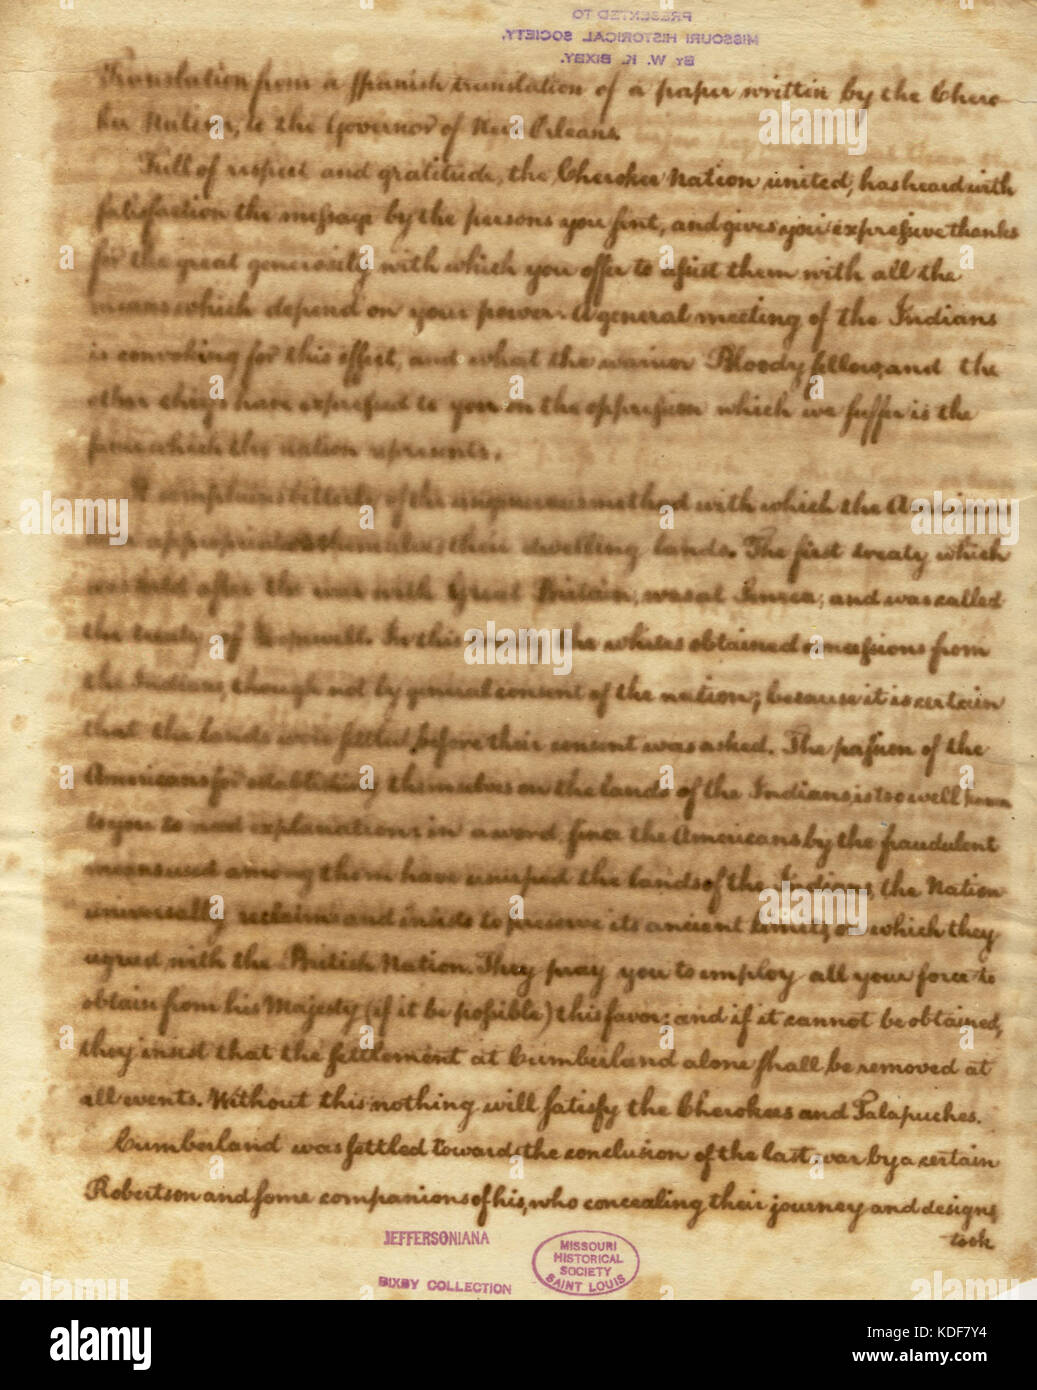 PRESENTED TO
MISSOURI HISTORICAL SOCIETY.
BY W. K. BIXBY.
Translation from a Spanish translation of a paper written by the Chero-
kee Nation, to the Governor of New Orleans.
Full of respect and gratitude, the Cherokee Nation united, has heard with
satisfaction the message by the persons you sent, and gives you expressive thanks
for the great generosity with which you offer to assist them with all the
means which depend on your power. A general meeting of the Indians
is convoking for this effect, and what the warrior Bloody fellow, and the
other chiefs have expressed to you on the oppression which we suffer is the
same which the nation represents.
It complains bitterly of the ungenerous method with which the Americans
appropriate to themselves their dwelling lands. The first treaty which
was held after the war with Great Britain, was at Seneca; and was called
the treaty of Hopewell. In this treaty the whites obtained concessions from
the Indians, though not by general consent of the nation; because it is certain
that the lands were settled before their consent was asked. The passion of the
Americans for establishing themselves on the lands of the Indians, is too well known
to you to need explanation: in a word, since the Americans by the fraudulent
means used among them have usurped the lands of the Indians, the Nation
universally reclaims and insists to preserve its ancient limits, on which they
agreed with the British Nation. They pray you to employ all your force to
obtain from his Majesty (if it be possible) this favor: and if it cannot be obtained,
they insist that the settlement at Cumberland alone shall be removed at
all events. Without this nothing will satisfy the Cherokees and Talapuches.
Cumberland was settled towards the conclusion of the last war by a certain
Robertson and some companions of his, who concealing their journey and designs
took
JEFFERSONIANA
BIXBY COLLECTION
MISSOURI
HISTORICAL
SOCIETY
SAINT LOUIS
alamy
Image ID: KDF7Y4
www.alamy.com